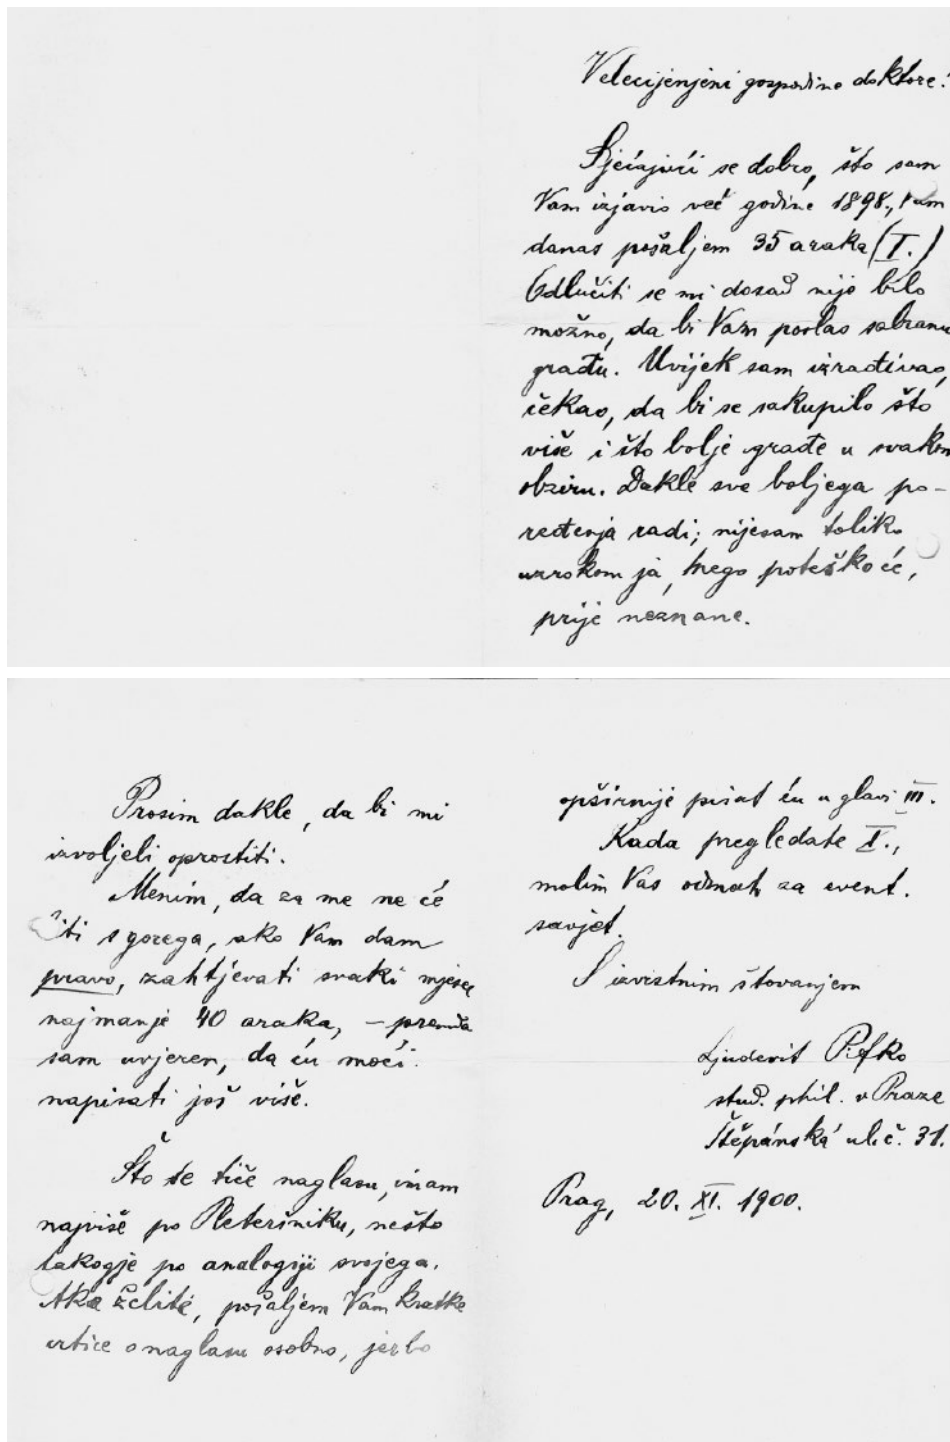 Velecijenjeni gospodine doktore!
Sjećajući se dobro, što sam
Vam izjavio već godine 1898., Vam
danas pošaljem 35 araka (I.)
Odlučiti se mi dosad nije bilo
možno, da bi Vam poslao sabranu
građu. Uvijek sam izrađivao,
čekao, da bi se sakupilo što
više i što bolje građe u svakom
obziru. Dakle sve boljega po-
ređenja radi; nijesam toliko
uzrokom ja, nego poteškoće,
prije neznane.
Prosim dakle, da bi mi
izvoljeli oprostiti.
Menim, da za me ne će
biti s gorega, ako Vam dam
pravo, zahtjevati svaki mjesec
najmanje 40 araka, – premda
sam uvjeren, da ću moći
napisati još više.
Što se tiče naglasu, imam
najviše po Pleteršniku, nešto
takogje po analogiji svojega.
Ako želite, pošaljem Vam kratke
crtice o naglasu osobno, jerbo
opširnije pisat ću u glavi III.
Kada pregledate I.,
molim Vas odmah za event.
savjet.
S izvistnim štovanjem
Ljudevit Pifko
stud. phil. v Praze
Štěpánská ul. č. 31.
Prag, 20. XI. 1900.